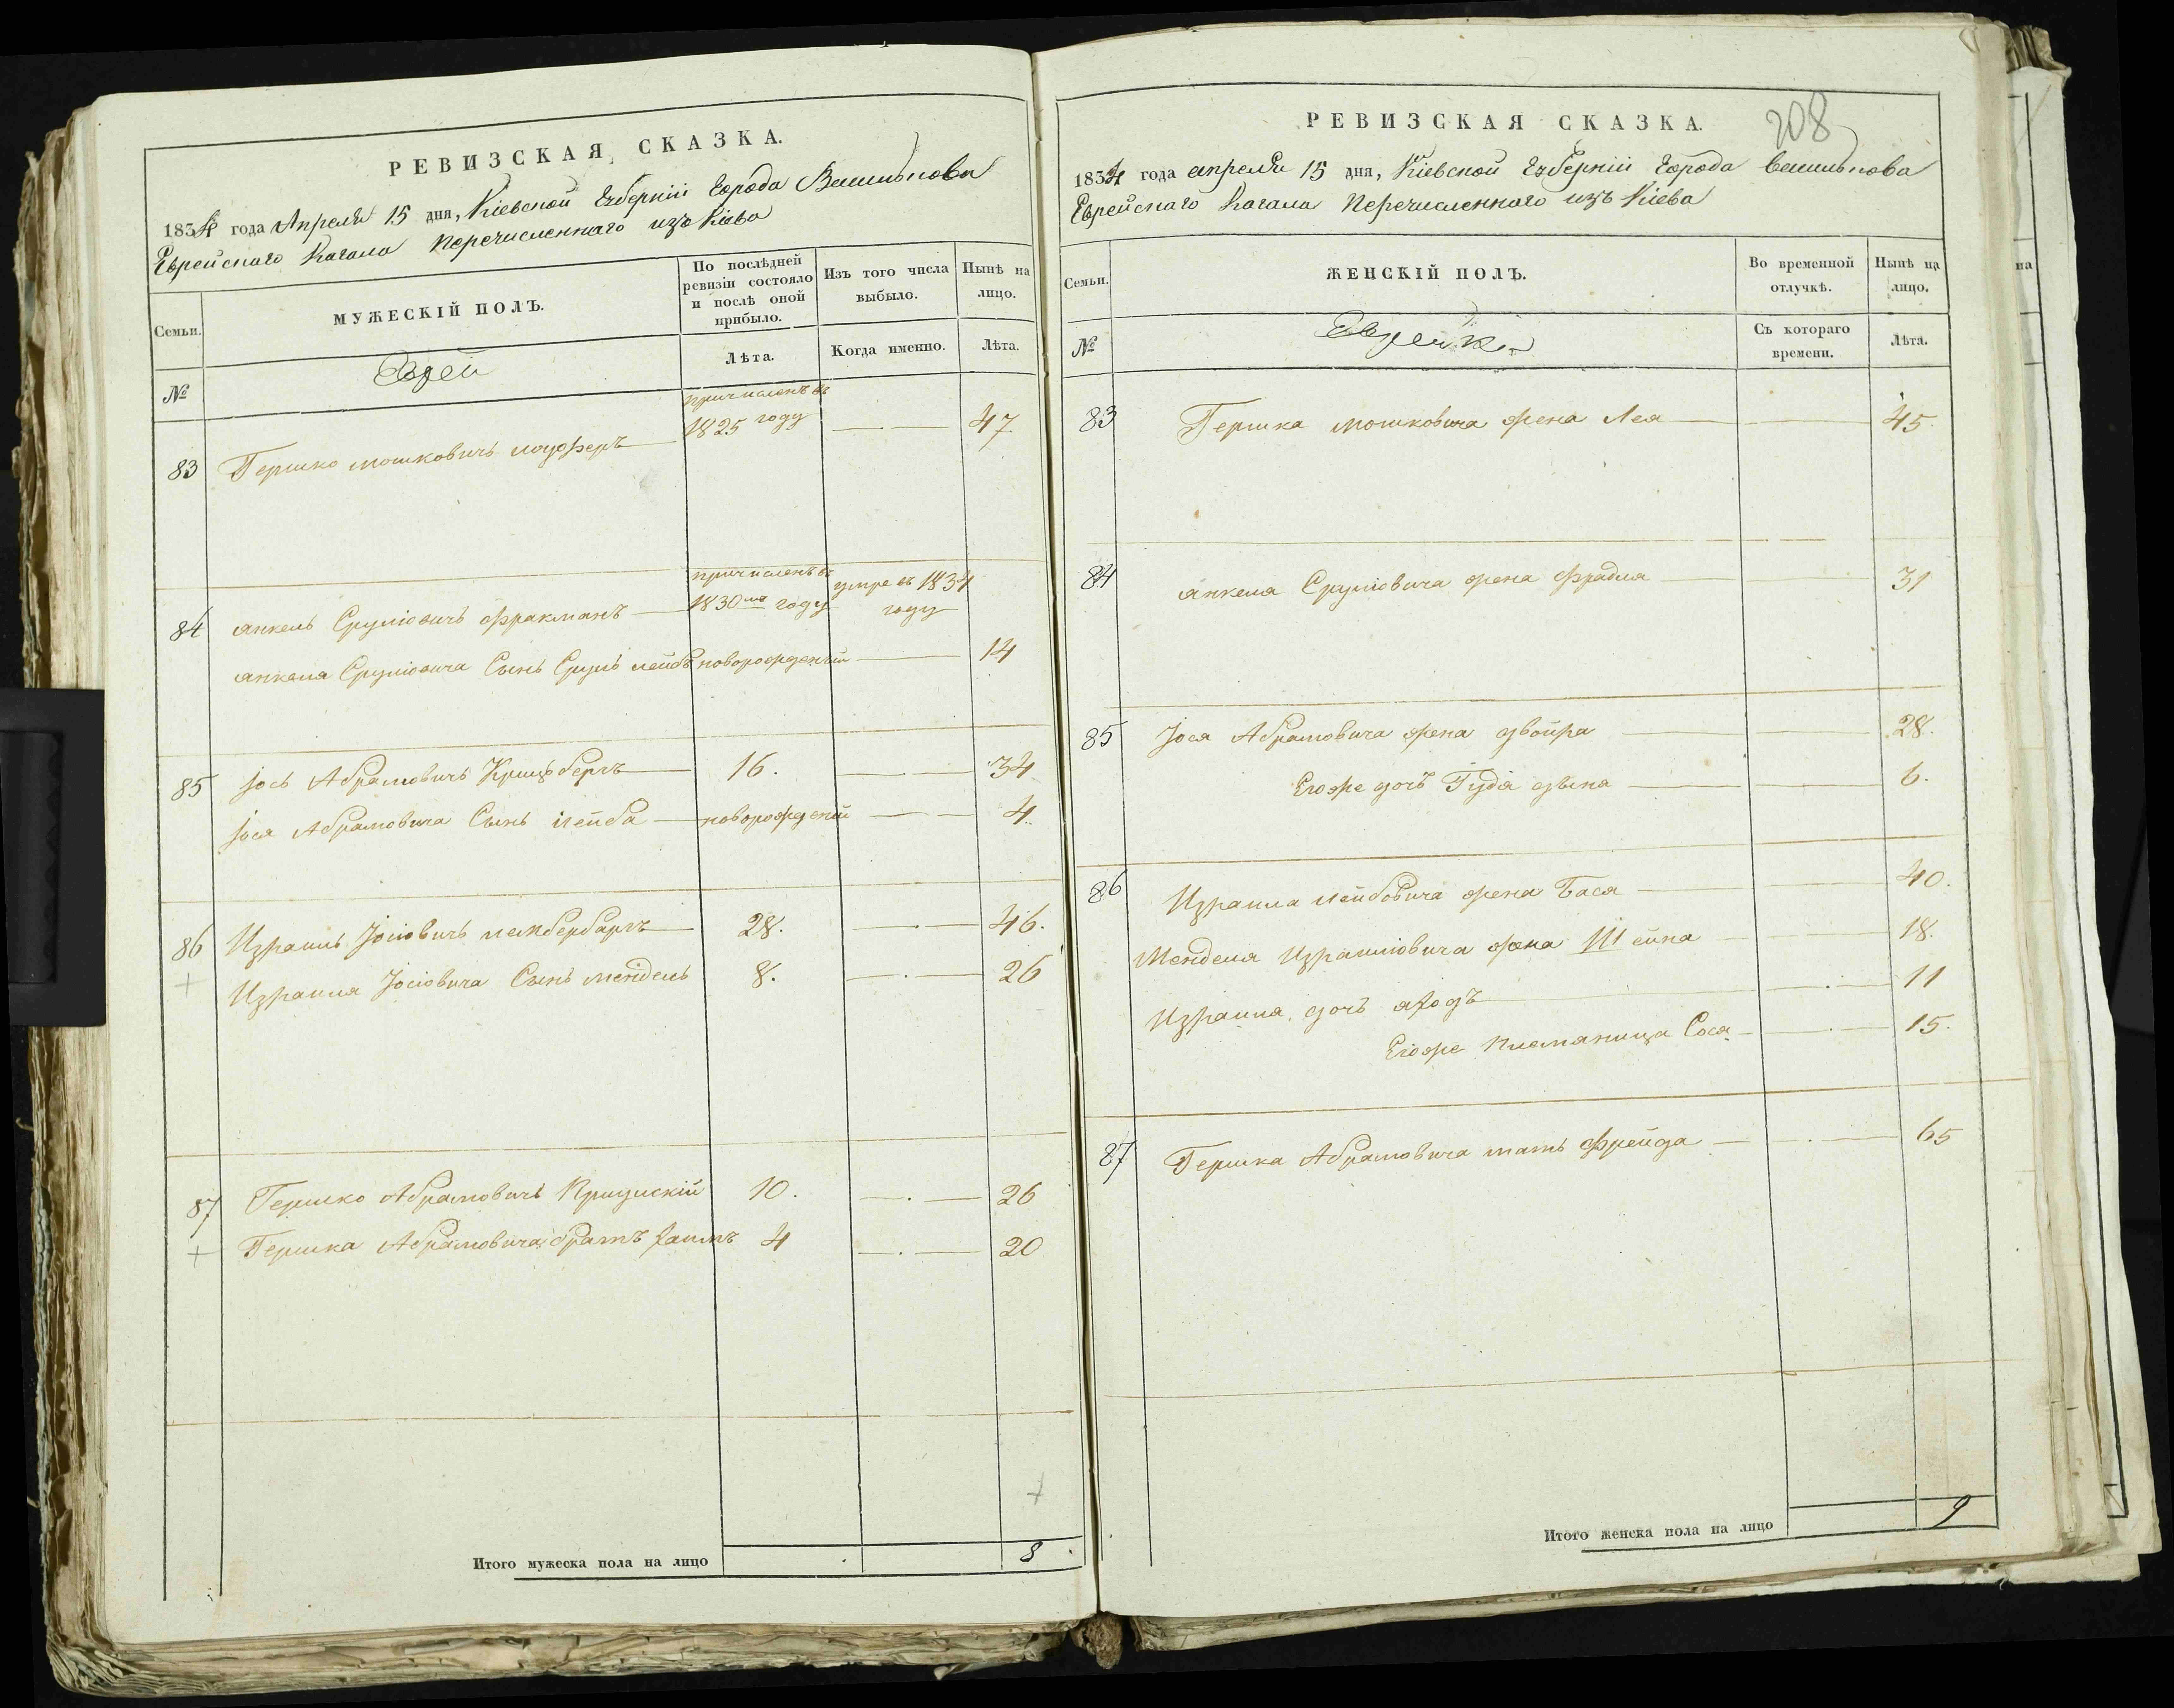 РЕВИЗСКАЯ СКАЗКА.
1834 года Апреля 15 дня, Кіевской Губерніи Города Василькова
Еврейскаго Кагала Перечисленнаго изъ Кіева
Семьи.
МУЖЕСКІЙ ПОЛЪ.
По послѣдней ревизіи состояло и послѣ оной прибыло.
Изъ того числа выбыло.
Нынѣ на лицо.
№
Еврей
Лѣта.
Когда именно.
Лѣта.
83 Гершко Мошковичъ причисленъ въ 1825 году 47
84 Янкель Сруліовичъ Фракманъ причисленъ въ 1830 году умре въ 1834 году
Янкеля Сруліовича Сынъ Сруль Лейбъ новорожденый 14
85 Іось Абрамовичъ 16. 34
Іося Абрамовича Сынъ Лейба новорожденый 4.
86 Израиль Іосіовичъ 28. 46.
Израиля Іосіовича Сынъ Мендель 8. 26
87 Гершко Абрамовичъ 10. 26
Гершка Абрамовича братъ Хаимъ 4 20
Итого мужеска пола на лицо 8
РЕВИЗСКАЯ СКАЗКА.
208
1834 года апреля 15 дня, Кіевской Губерніи Города Василькова
Еврейскаго Кагала Перечисленнаго изъ Кіева
Семьи.
ЖЕНСКІЙ ПОЛЪ.
Во временной отлучкѣ.
Нынѣ на лицо.
№
Еврейки
Съ котораго времени.
Лѣта.
83 Гершка Мошковича жена Лея 45.
84 Янкеля Сруліовича жена Фрадля 31
85 Іося Абрамовича жена Двойра 28.
Егоже дочь 6.
86 Израиля Лейбовича жена Бася 40.
Менделя Израиліовича жена Шейна 18.
Израиля дочь 11
Егоже племяница Сося 15.
87 Гершка Абрамовича мать Фрейда 65
Итого женска пола на лицо 9